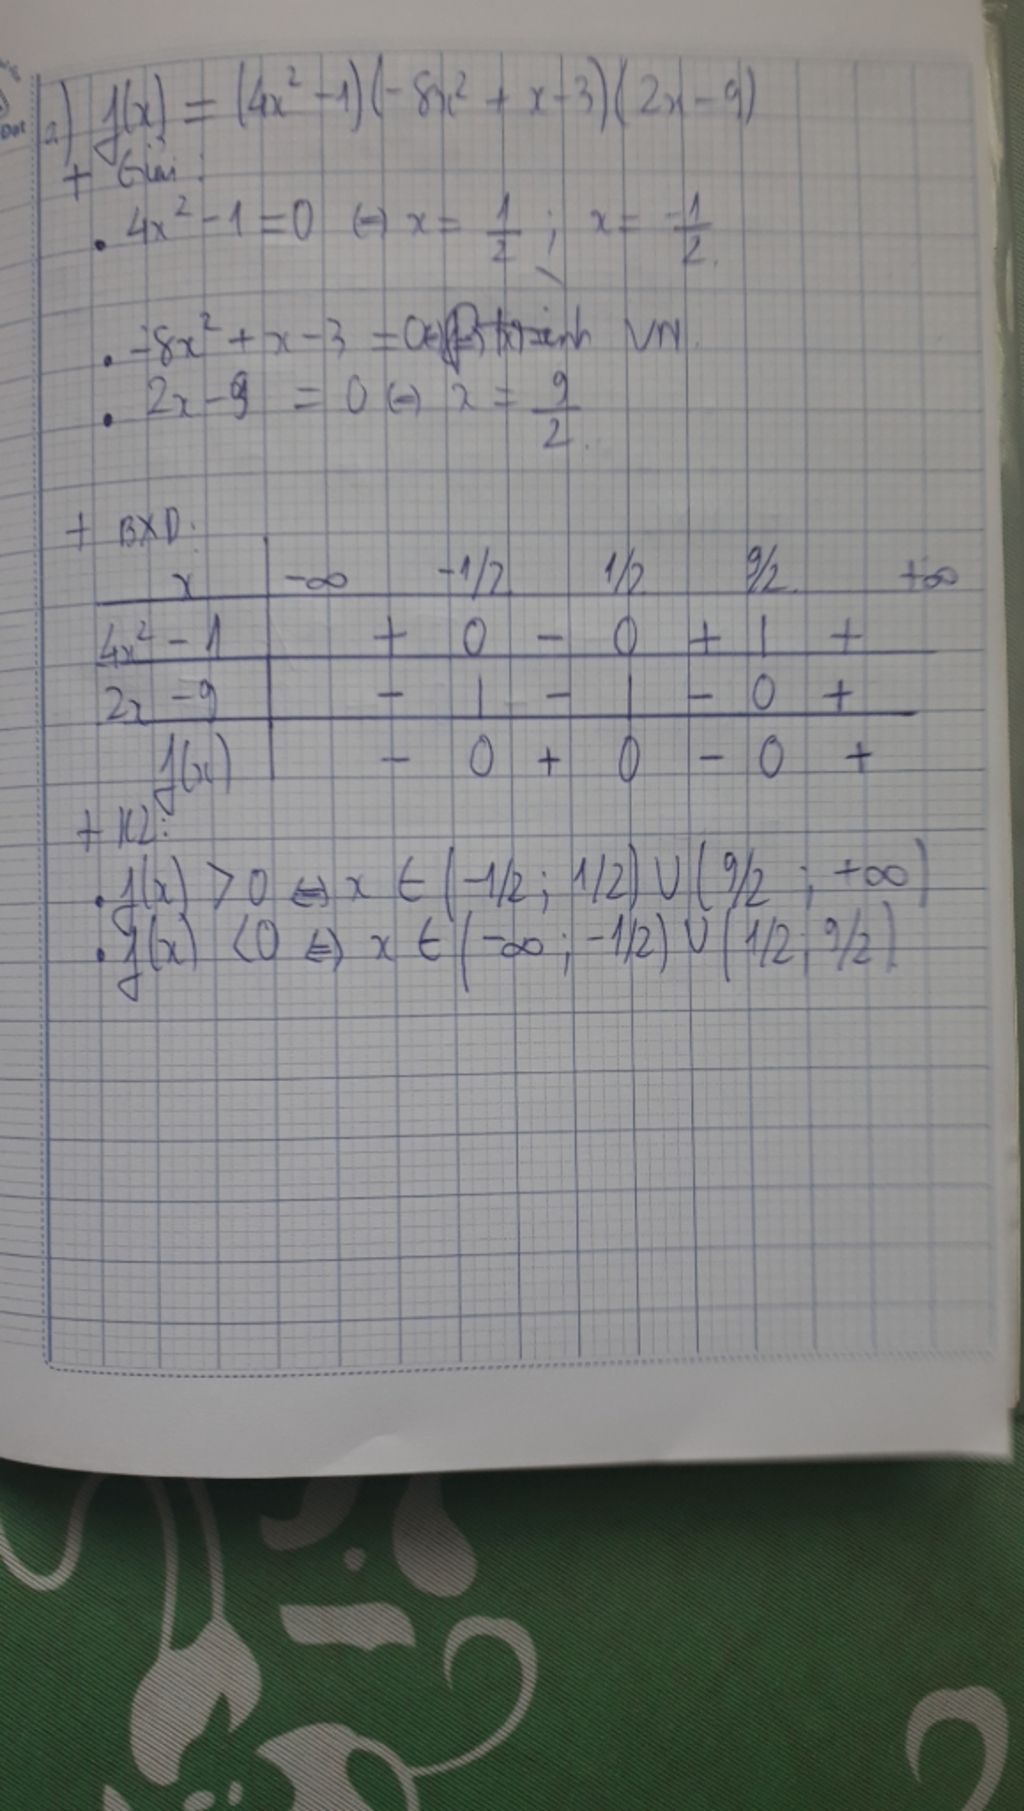 a) f(x) = (4x² - 1)(-8x² + x - 3)(2x - 9)
+ Giải:
• 4x² - 1 = 0 ⇔ x = 1/2 ; x = -1/2.
• -8x² + x - 3 = 0 VN.
• 2x - 9 = 0 ⇔ x = 9/2.
+ BXD:
x -∞ -1/2 1/2 9/2 +∞
4x² - 1 + 0 - 0 + | +
2x - 9 - | - | - 0 +
f(x) - 0 + 0 - 0 +
+ KL:
• f(x) > 0 ⇔ x ∈ (-1/2 ; 1/2) ∪ (9/2 ; +∞)
• f(x) < 0 ⇔ x ∈ (-∞ ; -1/2) ∪ (1/2 ; 9/2).